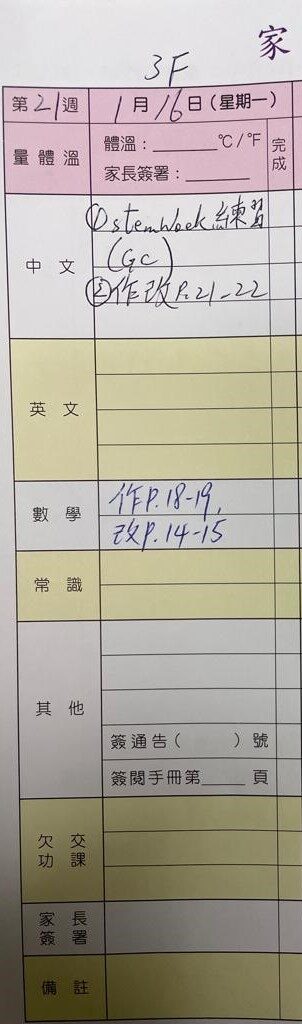 家
3F
第21週 1月16日(星期一)
量體溫 體溫:______℃/℉ 完成
家長簽署:______
中文 ①stemWeek練習
(GC)
②作改P.21-22
英文
數學 作P.18-19,
改P.14-15
常識
其他
簽通告( )號
簽閱手冊第____頁
欠交功課
家長簽署
備註